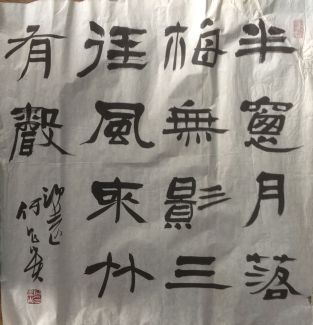 半窻月落
梅無影三
徑風來竹
有聲
何